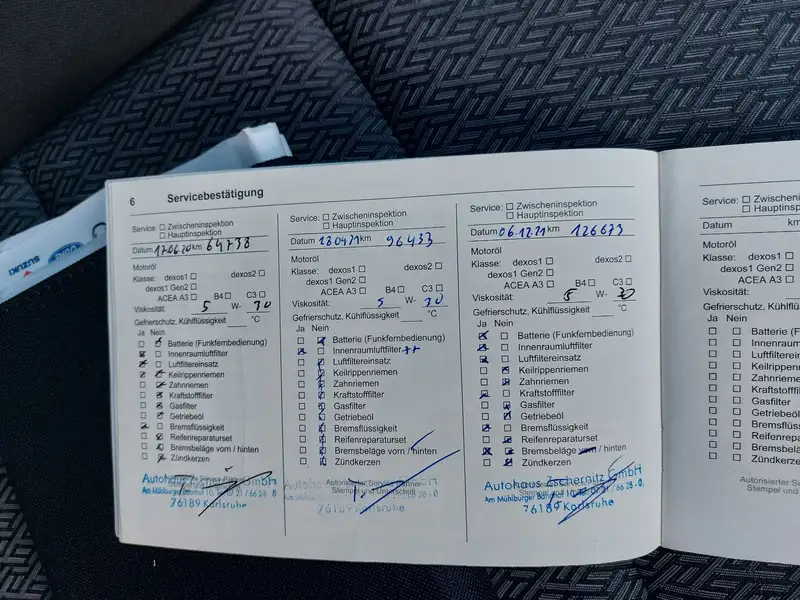 6 Servicebestätigung
Service: Zwischeninspektion
Hauptinspektion
Datum 17.06.20 km 64738
Motoröl
Klasse: dexos1 dexos2
dexos1 Gen2
ACEA A3 B4 C3
Viskosität: 5 W- 30
Gefrierschutz, Kühlflüssigkeit °C
Ja Nein
Batterie (Funkfernbedienung)
Innenraumluftfilter
Luftfiltereinsatz
Keilrippenriemen
Zahnriemen
Kraftstofffilter
Gasfilter
Getriebeöl
Bremsflüssigkeit
Reifenreparaturset
Bremsbeläge vorn / hinten
Zündkerzen
Autohaus Zschernitz GmbH
Am Mühlburger Bahnhof 10, Tel. 07 21 / 66 28 - 0
76189 Karlsruhe
Service: Zwischeninspektion
Hauptinspektion
Datum 28.04.21 km 96433
Motoröl
Klasse: dexos1 dexos2
dexos1 Gen2
ACEA A3 B4 C3
Viskosität: 5 W- 30
Gefrierschutz, Kühlflüssigkeit °C
Ja Nein
Batterie (Funkfernbedienung)
Innenraumluftfilter
Luftfiltereinsatz
Keilrippenriemen
Zahnriemen
Kraftstofffilter
Gasfilter
Getriebeöl
Bremsflüssigkeit
Reifenreparaturset
Bremsbeläge vorn / hinten
Zündkerzen
Autorisierter Service Partner
Stempel und Unterschrift
76189 Karlsruhe
Service: Zwischeninspektion
Hauptinspektion
Datum 06.12.21 km 126673
Motoröl
Klasse: dexos1 dexos2
dexos1 Gen2
ACEA A3 B4 C3
Viskosität: 5 W- 30
Gefrierschutz, Kühlflüssigkeit °C
Ja Nein
Batterie (Funkfernbedienung)
Innenraumluftfilter
Luftfiltereinsatz
Keilrippenriemen
Zahnriemen
Kraftstofffilter
Gasfilter
Getriebeöl
Bremsflüssigkeit
Reifenreparaturset
Bremsbeläge vorn / hinten
Zündkerzen
Autohaus Zschernitz GmbH
Am Mühlburger Bahnhof 10, Tel. 07 21 / 66 28 - 0
76189 Karlsruhe
Service: Zwischeninspektion
Hauptinspektion
Datum km
Motoröl
Klasse: dexos1
dexos1 Gen2
ACEA A3
Viskosität:
Gefrierschutz, Kühlflüssigkeit
Ja Nein
Batterie (Funkfern
Innenraumluftfilter
Luftfiltereinsatz
Keilrippenriemen
Zahnriemen
Kraftstofffilter
Gasfilter
Getriebeöl
Bremsflüssigkeit
Reifenreparaturset
Bremsbeläge vorn
Zündkerzen
Autorisierter Servic
Stempel und
SUZUKI